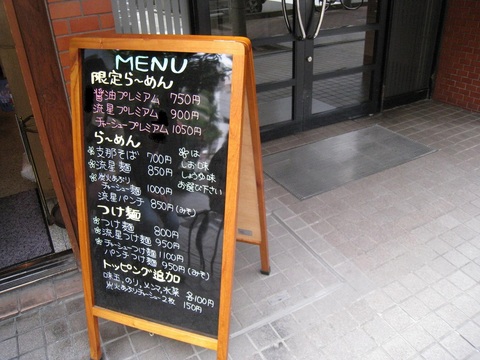 MENU
限定らーめん
醤油プレミアム 750円
流星プレミアム 900円
チャーシュープレミアム 1050円
らーめん
※支那そば 700円
※流星麺 850円
※炭火あぶり
チャーシュー麺 1000円
流星パンチ 850円(みそ)
※は
しお味
しょうゆ味
お選び下さい
つけ麺
※つけ麺 800円
※流星つけ麺 950円
※チャーシューつけ麺 1100円
パンチつけ麺 950円(みそ)
トッピング追加
味玉、のり、メンマ、水菜 各100円
炭火あぶりチャーシュー2枚 150円